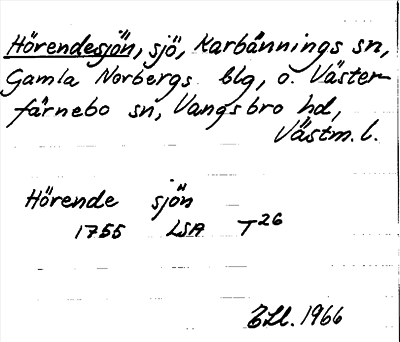 Hörendesjön, sjö, Karbännings sn,
Gamla Norbergs blg, o. Väster-
färnebo sn, Vangsbro hd,
Västm. l.
Hörende sjön
1755 LSA T26
1966